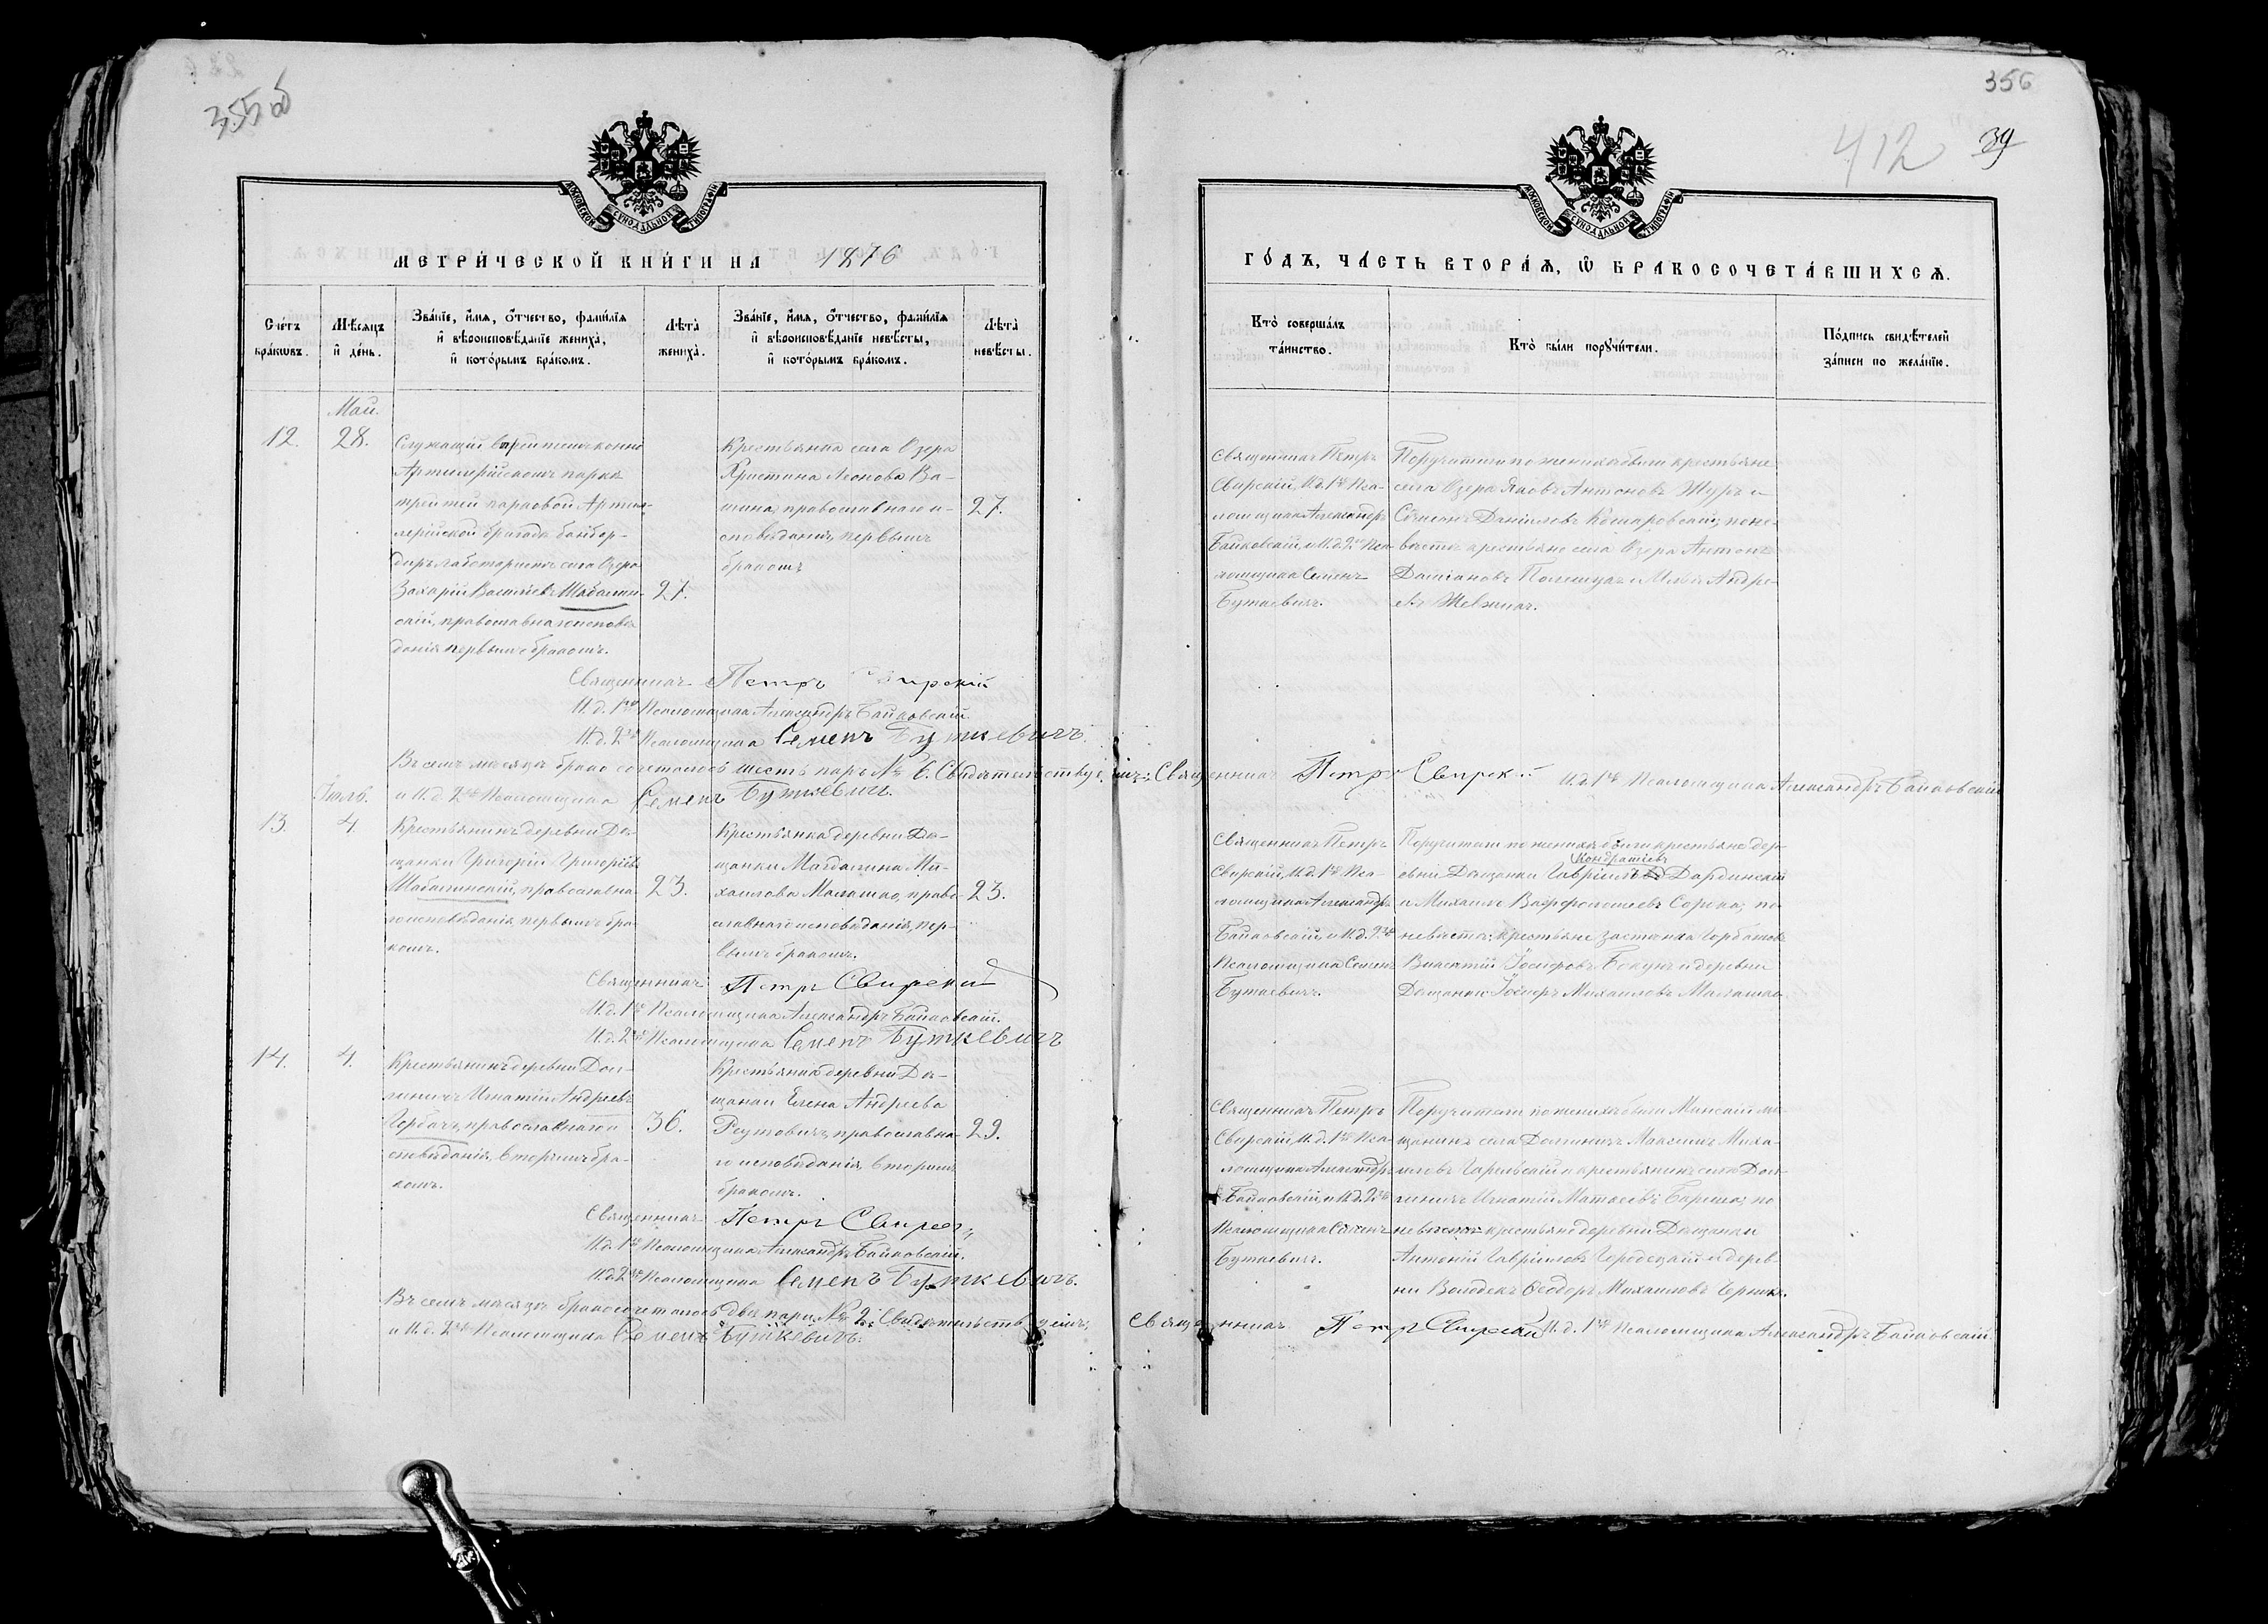 355об
МОСКОВСКОЙ СѴНОДАЛЬНОЙ ТИПОГРАФІИ
МЕТРИ́ЧЕСКОЙ КНИ́ГИ НА 1876
Сче́тъ бра́ковъ.
Мѣ́сяцъ и҆ де́нь.
Зва́нїе, и҆́мя, ѻ҆́тчество, фами́лїя и҆ вѣроисповѣ́данїе жениха̀, и҆ кото́рымъ бра́комъ.
Лѣ́та жениха̀.
Зва́нїе, и҆́мя, ѻ҆́тчество, фами́лїя и҆ вѣроисповѣ́данїе невѣ́сты, и҆ кото́рымъ бра́комъ.
Лѣ́та невѣ́сты.
Май.
12.
28.
Служащій въ третьемъ конно
Артилерійскомъ паркѣ
третьей парковой Артил-
лерійской бригады бомбор-
диръ лаботористъ села Озера
Захарій Васильевъ Шабалин-
скій, православнаго исповѣ-
данія первымъ бракомъ.
27.
Крестьянка села Озера
Христина Леонова Ва-
православнаго и-
сповѣданія, первымъ
бракомъ
27.
Священникъ Петръ Свирскій
И.д. 1го Псаломщика Александръ Байковскій.
И.д. 2го Псаломщика Семенъ Буткевичъ.
Въ семъ мѣсяцѣ брако сочеталось шесть паръ № 6. Свидѣтельствуемъ: Священникъ Петръ Свирскій И.д. 1го Псаломщика Александръ Байковскій
и И.д. 2го Псаломщика Семенъ Буткевичъ.
Іюль.
13.
4.
Крестьянинъ деревни До-
щанки Григорій Григорьевъ
Шабалинскій, православна-
го исповѣданія, первымъ бра-
комъ.
23.
Крестьянка деревни До-
щанки Магдалина Ми-
хаилова Малашко, право-
славнаго исповѣданія, пер-
вымъ бракомъ.
23.
Священникъ Петръ Свирскій
И.д. 1го Псаломщика Александръ Байковскій.
И.д. 2го Псаломщика Семенъ Буткевичъ
14.
4.
Крестьянинъ деревни Дол-
гиничъ Игнатій Андреевъ
Горбачъ, православнаго и-
сповѣданія, вторымъ бра-
комъ.
36.
Крестьянка деревни До-
щанки Елена Андреева
Реутовичъ, православна-
го исповѣданія, вторымъ
бракомъ.
29.
Священникъ Петръ Свирскій
И.д. 1го Псаломщика Александръ Байковскій.
И.д. 2го Псаломщика Семенъ Буткевичъ.
Въ семъ мѣсяцѣ бракосочеталось двѣ пары № 2. Свидѣтельствуемъ: Священникъ Петръ Свирскій И.д. 1го Псаломщика Александръ Байковскій
и И.д. 2го Псаломщика Семенъ Буткевичъ.
356
412
39
МОСКОВСКОЙ СѴНОДАЛЬНОЙ ТИПОГРАФІИ
ГО́ДЪ, ЧА́СТЬ ВТОРА́Я, Ѽ БРАКОСОЧЕТА́ВШИХСЯ.
Кто̀ соверша́лъ та́инство.
Кто̀ бы́ли порꙋчи́тели.
По́дпись свидѣ́телей за́писи по жела́нїю.
Священникъ Петръ
Свирскій, И.д. 1го Пса-
ломщика Александръ
Байковскій, и И.д. 2го Пса-
ломщика Семенъ
Буткевичъ.
Поручители по женихѣ были крестьяне
села Озера Яковъ Антоновъ Журъ и
Стефанъ Даніиловъ Комаровскій; по не-
вѣстѣ крестьяне села Озера Антонъ
Даміановъ Полещукъ и Илья Андре-
евъ
Священникъ Петръ
Свирскій, И.д. 1го Пса-
ломщика Александръ
Байковскій, и И.д. 2го
Псаломщика Семенъ
Буткевичъ.
Поручители по женихѣ были крестьяне дер-
Кондратіевъ
евни Дощанки Гавріилъ Дардинскій
и Михаилъ Варфоломеевъ Сорока; по
невѣстѣ: крестьяне застенка Горбатов
Викентій Іосифовъ Бокунъ и деревни
Дощанки Іосифъ Михаиловъ Малашко
Священникъ Петръ
Свирскій, И.д. 1го Пса-
ломщика Александръ
Байковскій, и И.д. 2го
Псаломщика Семенъ
Буткевичъ.
Поручители по женихѣ были Минскій мѣ-
щанинъ села Долгиничъ Максимъ Миха-
иловъ и крестьянинъ села Дол-
гиничъ Игнатій Матвеевъ по
невѣстѣ крестьяне деревни Дощанки
Антоній Гавріиловъ Городецкій и дерев-
ни Володекъ Ѳеодоръ Михаиловъ